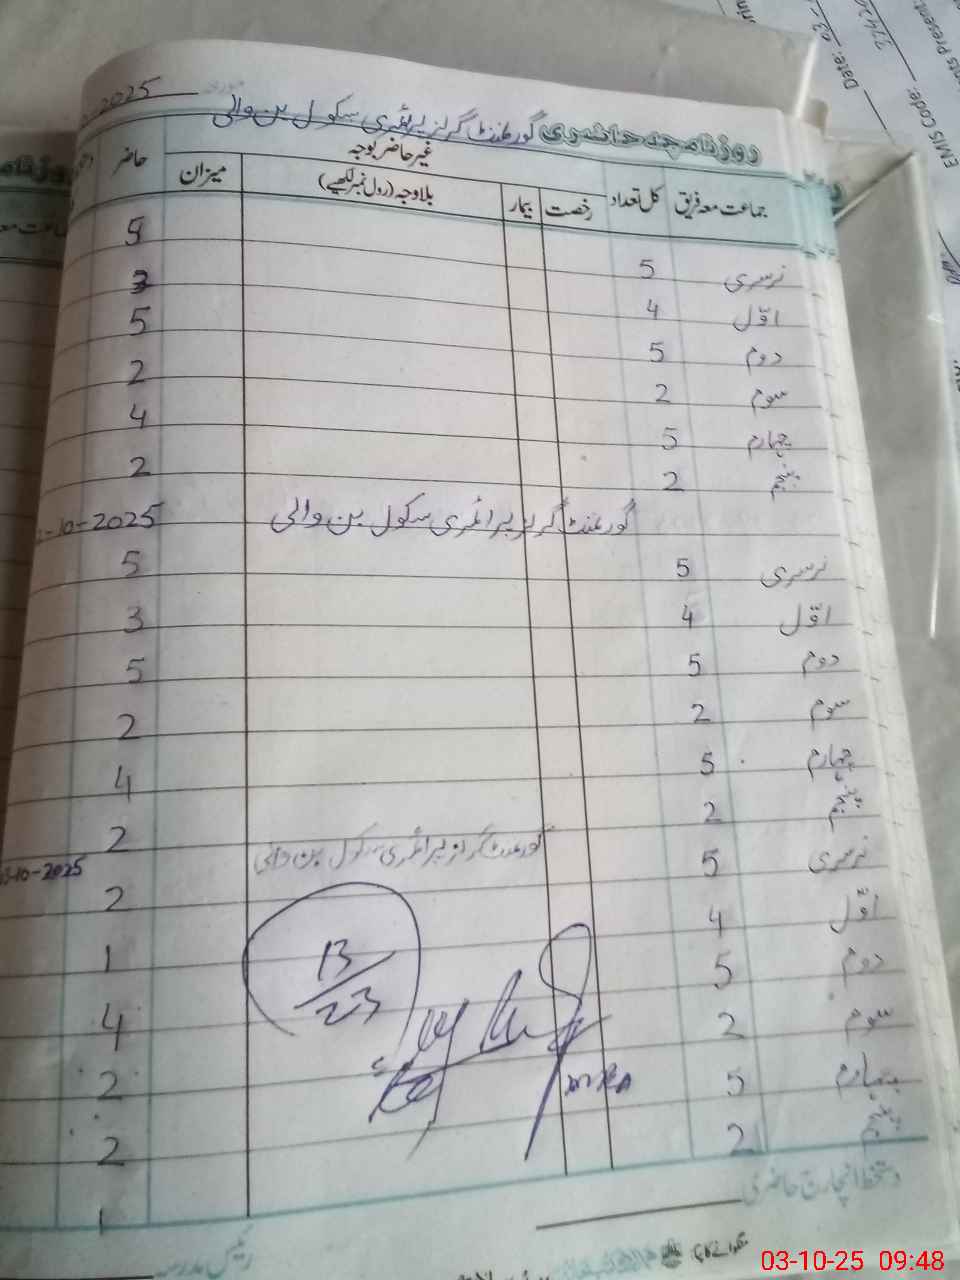 2025
روزنامچہ حاضری گورنمنٹ گرلز پرائمری سکول بن والی
جماعت معہ فریق کل تعداد غیر حاضر بوجہ میزان حاضر
رخصت بیمار بلاوجہ (رول نمبر لکھیے)
نرسری 5 5
اوّل 4 3
دوم 5 5
سوم 2 2
چہارم 5 4
پنجم 2 2
گورنمنٹ گرلز پرائمری سکول بن والی -10-2025
نرسری 5 5
اوّل 4 3
دوم 5 5
سوم 2 2
چہارم 5 4
پنجم 2 2
گورنمنٹ گرلز پرائمری سکول بن والی 03-10-2025
نرسری 5 2
اوّل 4 1
دوم 5 4
سوم 2 2
چہارم 5 2
پنجم 2 1
13/23
دستخط انچارج حاضری
رئیس مدرسہ
Date: 03-
EMIS Code: 3742
nts Present:
03-10-25 09:48